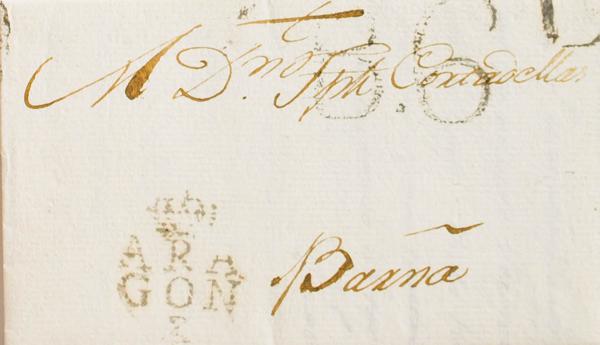 M Dn Jph Cortadellas
ARA
GON
Barña